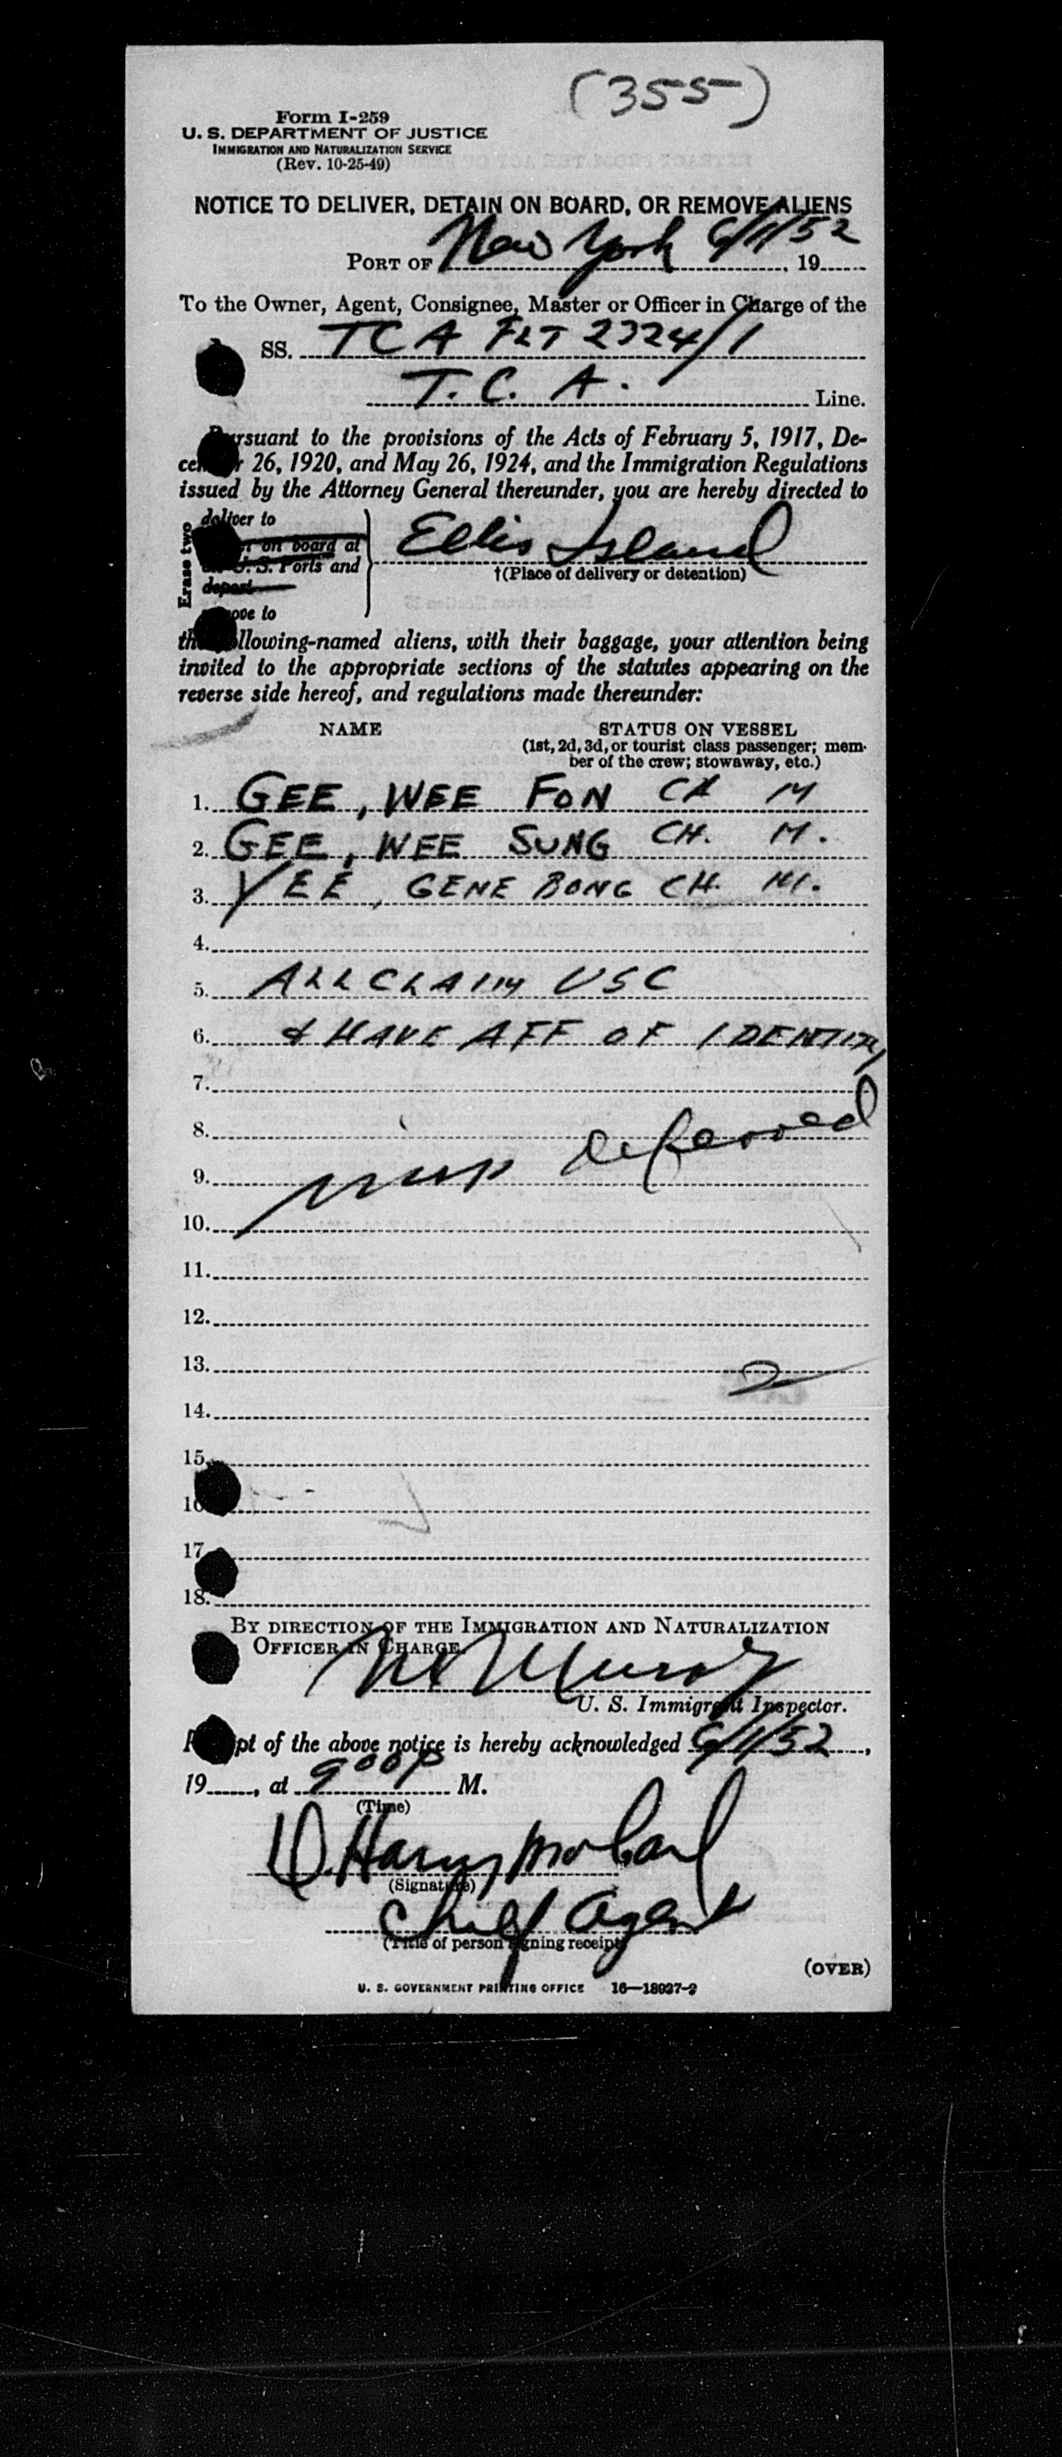 (355)
Form I-259
U. S. DEPARTMENT OF JUSTICE
IMMIGRATION AND NATURALIZATION SERVICE
(Rev. 10-25-49)
NOTICE TO DELIVER, DETAIN ON BOARD, OR REMOVE ALIENS
PORT OF New York 6/1/52, 19
To the Owner, Agent, Consignee, Master or Officer in Charge of the
SS. TCA FLT 2324/1
T. C. A. Line.
Pursuant to the provisions of the Acts of February 5, 1917, De-
cember 26, 1920, and May 26, 1924, and the Immigration Regulations
issued by the Attorney General thereunder, you are hereby directed to
Erase two
deliver to
on board at
U. S. Ports and
depart
remove to
Ellis Island
†(Place of delivery or detention)
the following-named aliens, with their baggage, your attention being
invited to the appropriate sections of the statutes appearing on the
reverse side hereof, and regulations made thereunder:
NAME STATUS ON VESSEL
(1st, 2d, 3d, or tourist class passenger; mem-
ber of the crew; stowaway, etc.)
1. GEE, WEE FON CH M
2. GEE, WEE SUNG CH. M.
3. YEE, GENE BONG CH. M.
4.
5. ALL CLAIM USC
6. & HAVE AFF OF IDENTITY
7.
8. Deferred
9.
10.
11.
12.
13. 2
14.
15.
16
17
18.
BY DIRECTION OF THE IMMIGRATION AND NATURALIZATION
OFFICER IN CHARGE
U. S. Immigrant Inspector.
Receipt of the above notice is hereby acknowledged 6/1/52,
19, at 900P M.
(Time)
(Signature)
Chief Agent
(Title of person signing receipt)
(OVER)
U. S. GOVERNMENT PRINTING OFFICE 16—18927-2